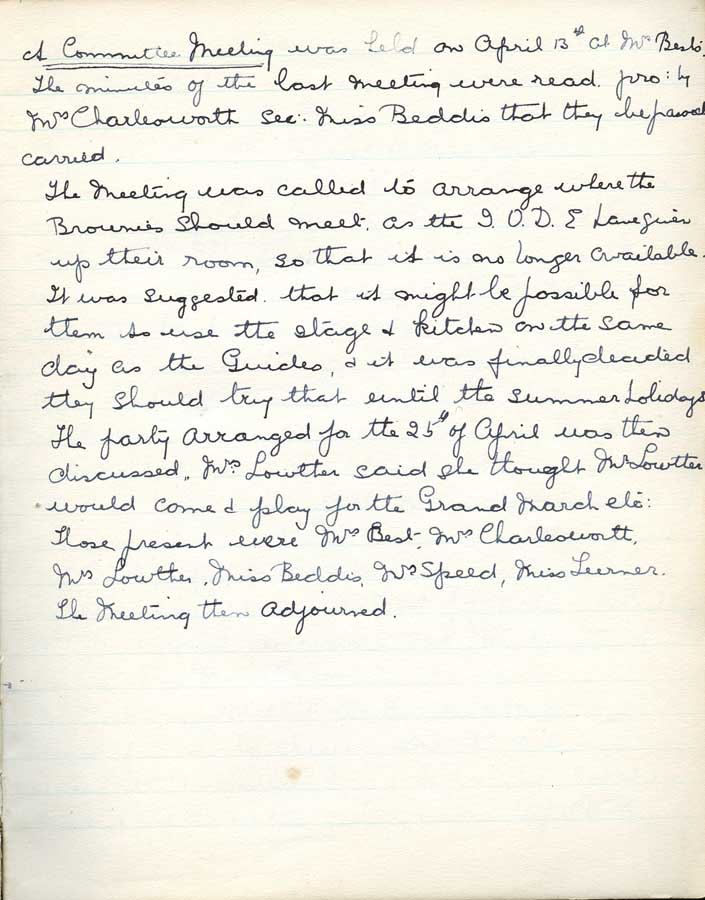 A Committee Meeting was held on April 13th at Mrs Best's.
The minutes of the last meeting were read. pro: by
Mrs Charlesworth Sec: Miss Beddis that they be passed
carried.
The Meeting was called to arrange where the
Brownies should meet, as the I.O.D.E have given
up their room, so that it is no longer available.
It was suggested that it might be possible for
them to use the stage & kitchen on the same
day as the Guides, & it was finally decided
they should try that until the summer holidays
The party arranged for the 25th of April was then
discussed. Mrs Lowther said she thought Mr Lowther
would come & play for the Grand March etc:
Those present were Mrs Best, Mrs Charlesworth,
Mrs Lowther, Miss Beddis, Mrs Speed, Miss
The Meeting then adjourned.